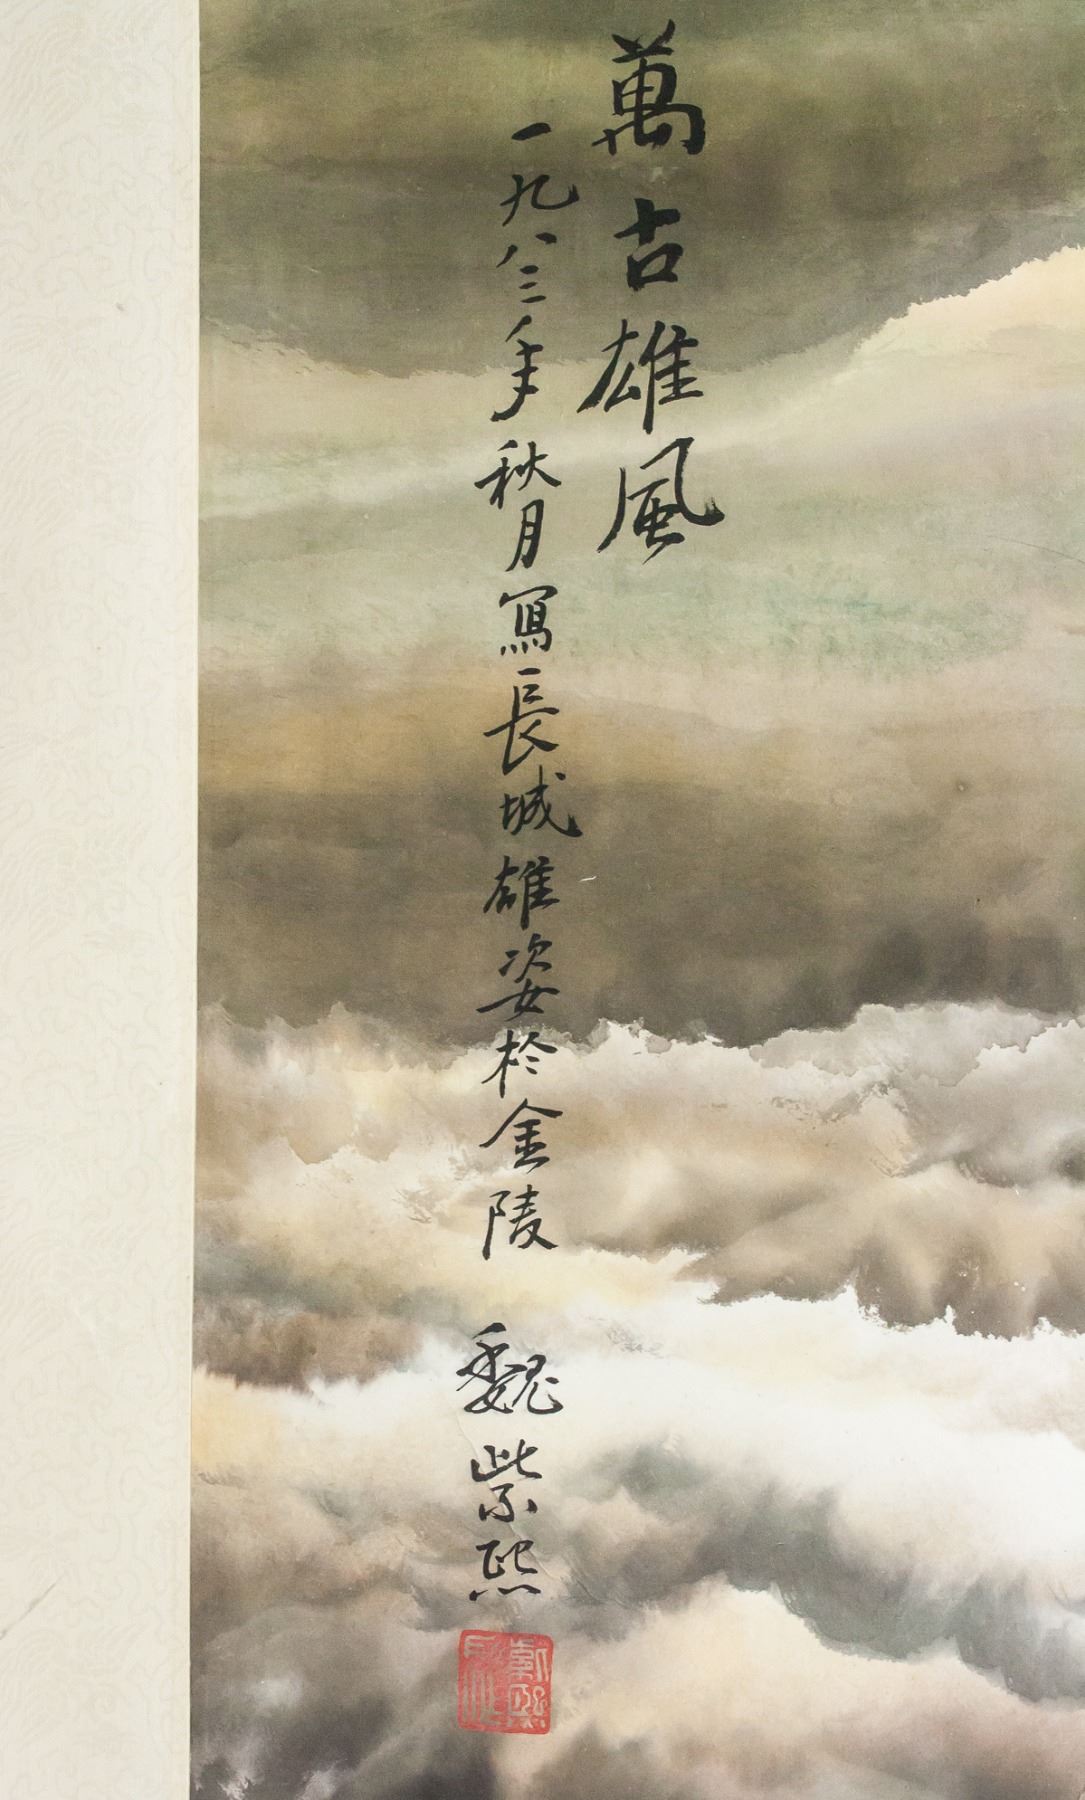 萬古雄風
一九八三年秋月寫長城雄姿於金陵 魏紫熙